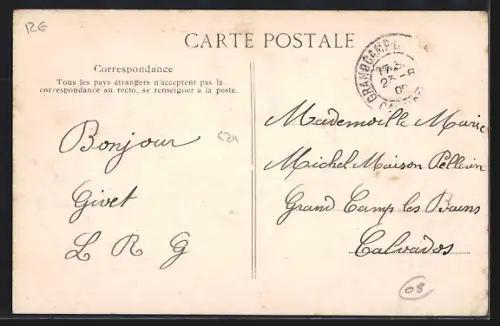 RE
CARTE POSTALE
Correspondance
Tous les pays étrangers n'acceptent pas la
correspondance au recto, se renseigner à la poste.
GRANDCAMP
23-8
Bonjour
Givet
L R G
Mademoiselle Marie
Michel Maison Pellerin
Grand Camp les Bains
Calvados
08